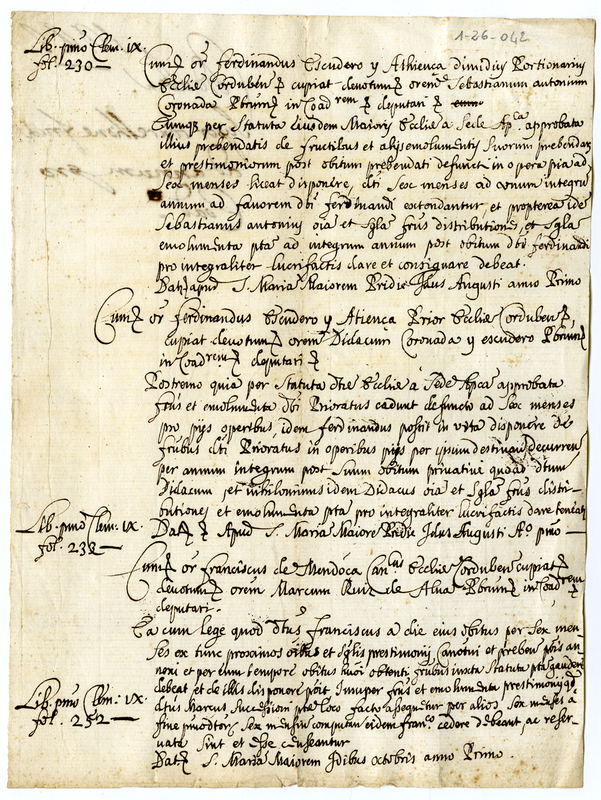 1-26-042
Lib. primo Clem. IX.
fol. 230
Cum or ferdinandus Escudero y Athienca dimidius Portionarius
Ecclie Corduben cupiat devotum orem Sebastianum antonium
Coronada Pbrum in Coad rem deputari
Cumq per Statuta eiusdem Maioris Ecclie a Sede Ap.ca approbata
illius prebendatis de fructibus et alijs emolumentis suorum prebendarum
et prestimoniorum post obitum prebendati defuncti in opera pia ad
Sex menses liceat disponere, dti Sex menses ad annum integrum
annum ad favorem dti ferdinandi extendantur, et propterea idem
Sebastianus antonius oia et sgla frus distributiones, et sgla
emolumenta pta ad integrum annum post obitum dti ferdinandi
pro integraliter lucrifactis dare et consignare debeat.
Dat apud S. Mariam Maiorem Pridie Idus Augusti anno Primo
Cum or ferdinandus Escudero y Atienca Prior Ecclie Corduben
cupiat devotum orem Didacum Coronada y escudero Pbrum
in Coad rem deputari
Postremo quia per Statuta dte Ecclie a Sede Apca approbata
frus et emolumenta dti Prioratus cadunt defuncto ad Sex menses
pro pijs operibus, idem ferdinandus possit in vita disponere de
frubus dti Prioratus in operibus pijs per ipsum destinan decurren
per annum integrum post suum obitum privative quoad dtum
Didacum, et nihilominus idem Didacus oia et sgla frus distri-
butiones et emolumenta pta pro integraliter lucrifactis dare teneat
Lib. pmo Clem. IX.
fol. 232
Dat Apud S. Maria Maiore Pridie Idus Augusti Ao pmo
Cum or franciscus de Mendoca Can.cus Ecclie Corduben cupiat
devotum orem Marcum Ruiz de Alva Pbrum in Coad rem
deputari.
Ea cum lege quod dtus franciscus a die eius obitus per sex men-
ses ex tunc proximos oibus et sglis prestimonij Canotui et preben ptis an-
nexi et per eum tempore obitus huoi obtenti frubus iuxta Statuta pta gaudere
debeat et de illis disponere poit. Insuper frus et emolumenta prestimonij
dtus Marcus successioni pte loco facto assequetur per alios sex menses a
Lib. pmo Clem. IX.
fol. 252
fine pmodtorum sex mensium computan eidem franco cedere debeant, ac reser-
vata sint et esse censeantur
Dat S. Maria Maiorem Idibus octobris anno Primo.